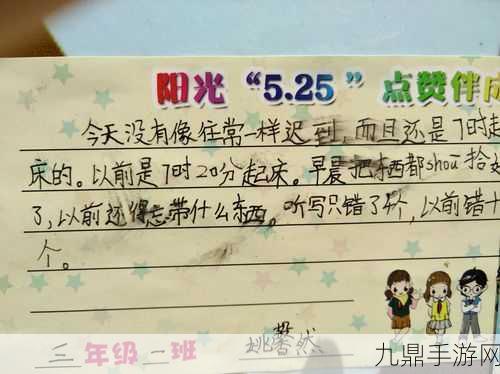 阳光“5.25”点赞伴成
今天没有像往常一样迟到,而且还是7时起
床的。以前是7时20分起床。早晨把东西都shōu拾好
了,以前还得忘带什么东西。听写只错了4个,以前错十
个。
三年级一班 姚馨然
九鼎手游网